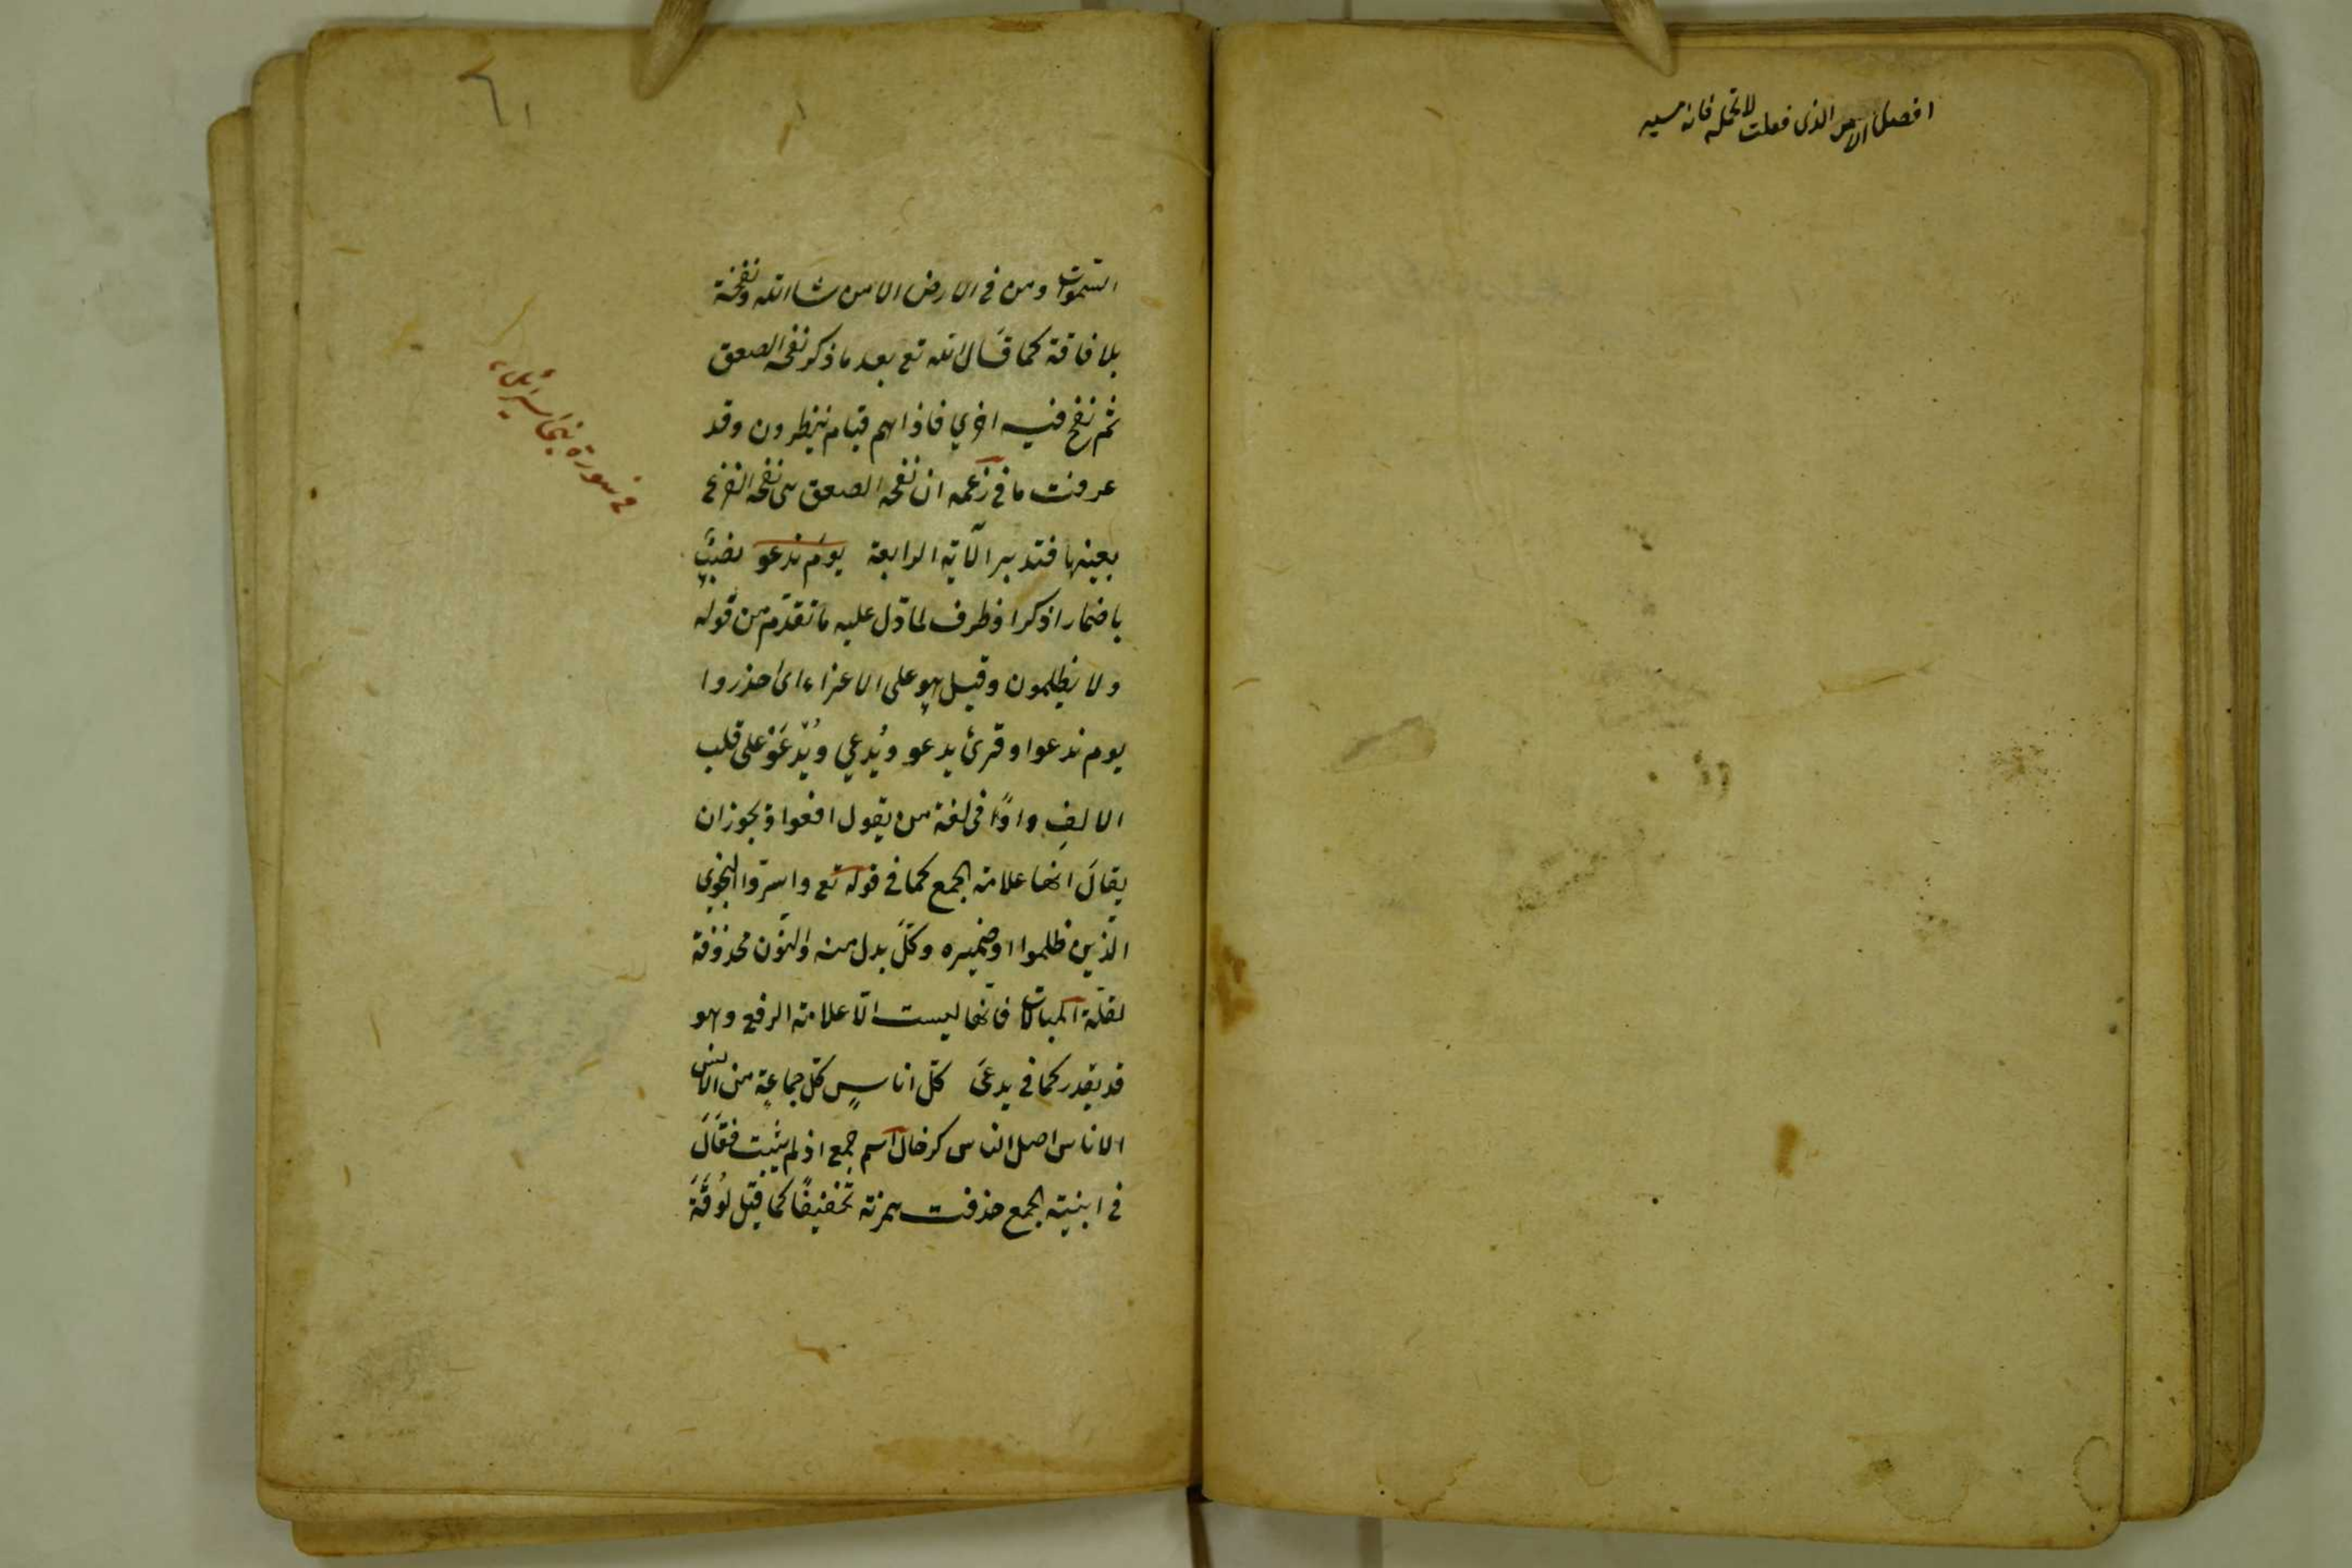 الذى فعلت لا تحمله فانه
٦١
السموات ومن فى الارض الا من شاالله ونفخة
بلا فاقة كما قال الله تع بعد ما ذكر نفخه الصعق
ثم نفخ فيه اخري فاذا هم قيام ينظرون وقد
عرفت ما فى زعمه ان نفخه الصعق هى نفخه الفزع
بعينها فتدبر الآية الرابعة يوم ندعو نصبٌ
باضمار اذكر او ظرف لما دل عليه ما تقدم من قوله
ولا يظلمون وقيل هو على الاغراء اى احذروا
يوم ندعوا وقرئ يدعو ويُدعي ويُدعَوْ على قلب
الالفِ واوًا فى لغة من يقول افعوا ويجوز ان
يقالَ انها علامة الجمع كما فى قوله تع واسرّوا النجوي
الذين ظلموا او ضميره وكلّ بدل منه والنون محذوفة
لقلّة المبالات فانّها ليست الّا علامة الرفع وهو
قد يقدر كما فى يدعى كلّ اناسٍ كلّ جماعةٍ من الانس
الاناس اصل الناس كرخال اسم جمع اذ لم يثبت فعَالَ
فى ابنية الجمع حذفت همزته تخفيفًا كما قيل لوُقَةَ
فى سورة بنى اسرائيل